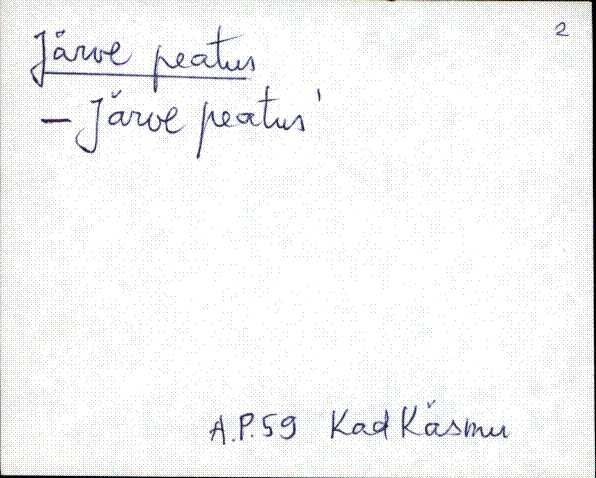 2
Järve peatus
– Järve peatus'
A.P.59 Kad Käsmu